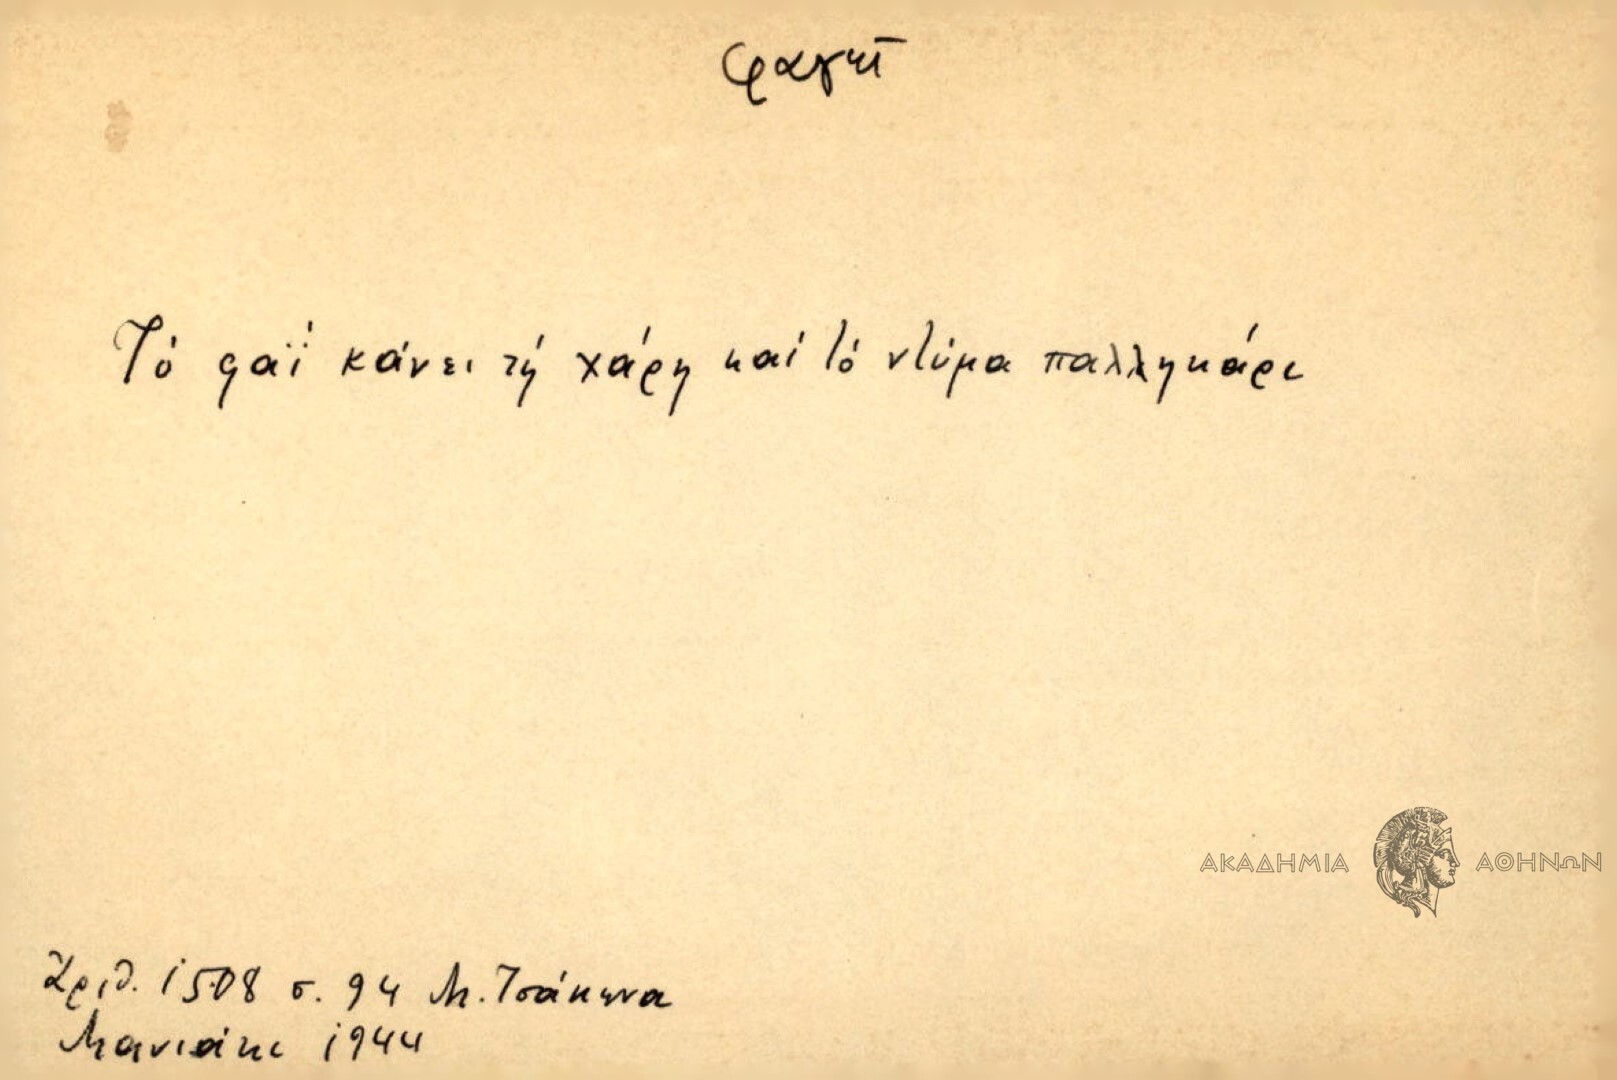 φαγητ
Τό φαΐ κάνει τή χάρη καί τό ντύμα παλληκάρι
ΑΚΑΔΗΜΙΑ ΑΘΗΝΩΝ
Ἀριθ. 1508 σ. 94 Μ. Τσάκωνα
Μανιάκι 1944